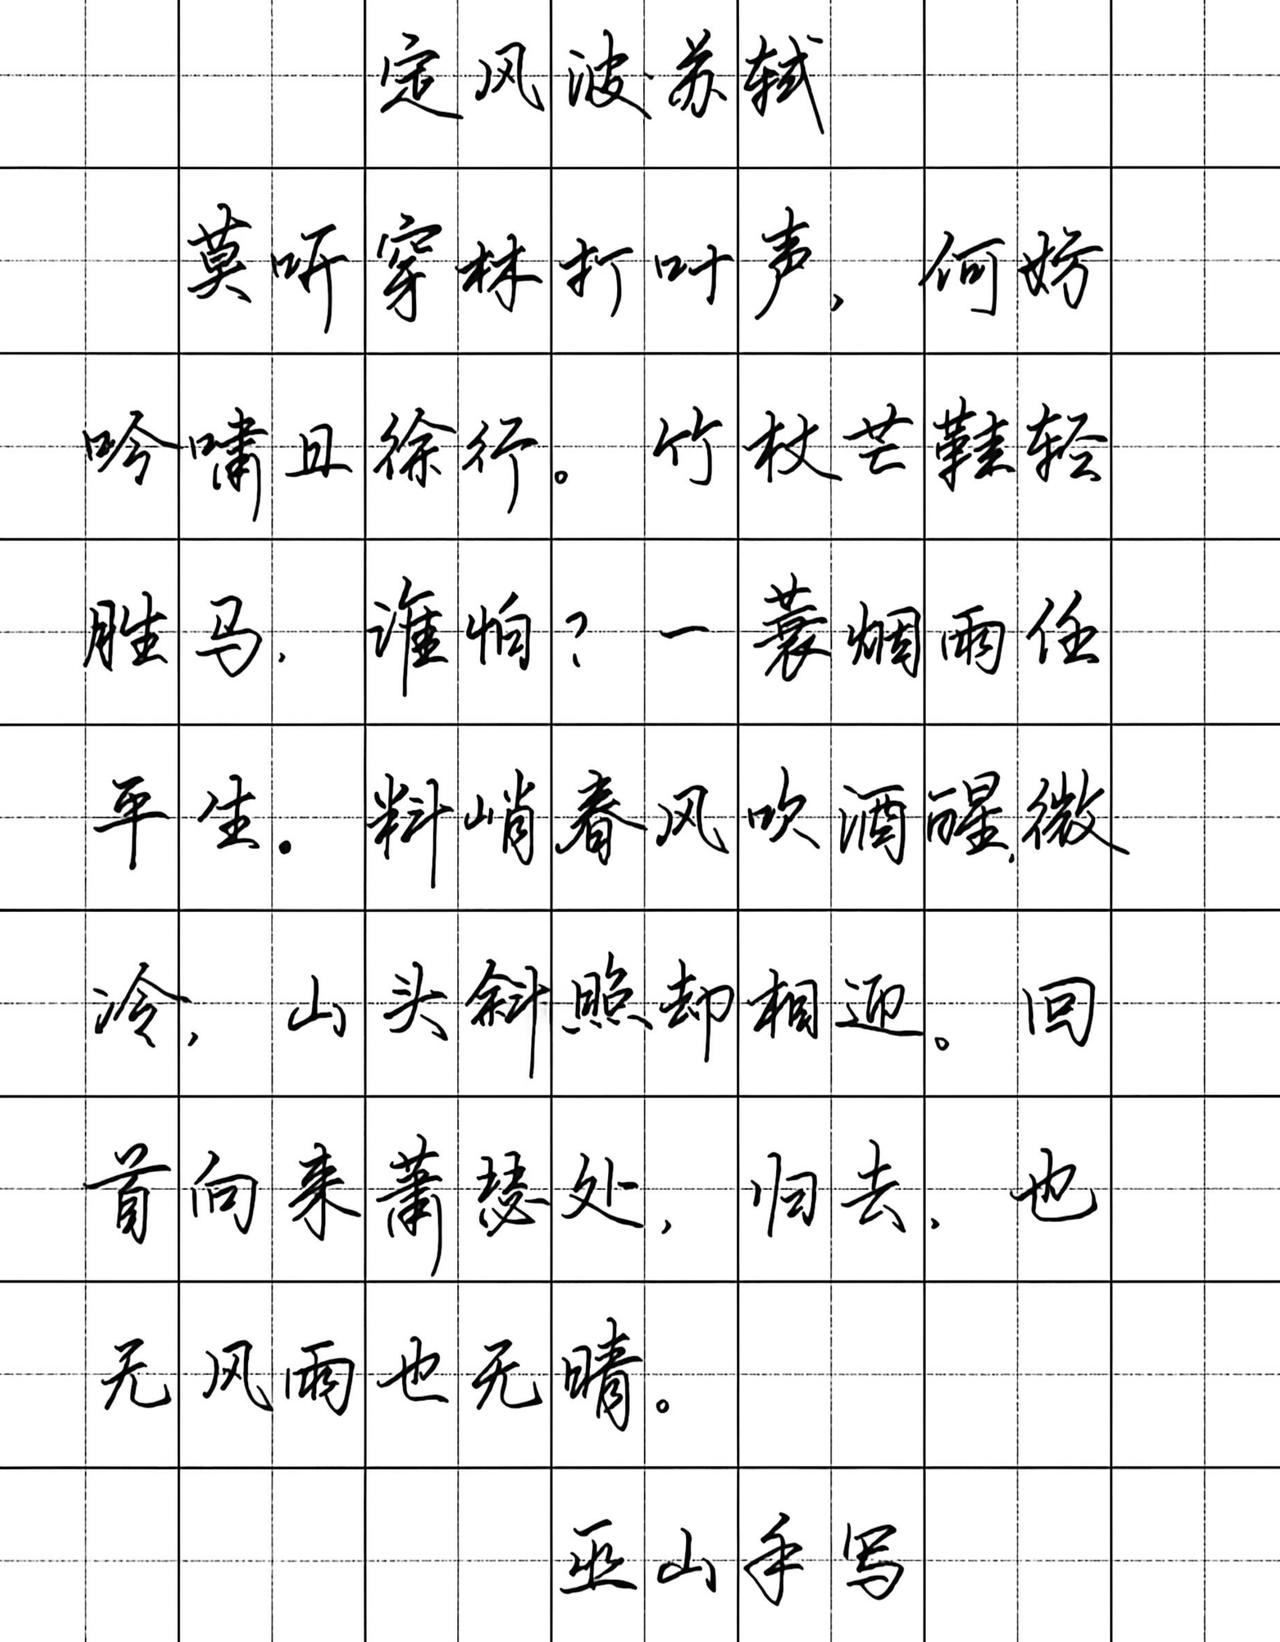 定风波·苏轼
莫听穿林打叶声，何妨
吟啸且徐行。竹杖芒鞋轻
胜马，谁怕？一蓑烟雨任
平生。料峭春风吹酒醒，微
冷，山头斜照却相迎。回
首向来萧瑟处，归去，也
无风雨也无晴。
巫山手写